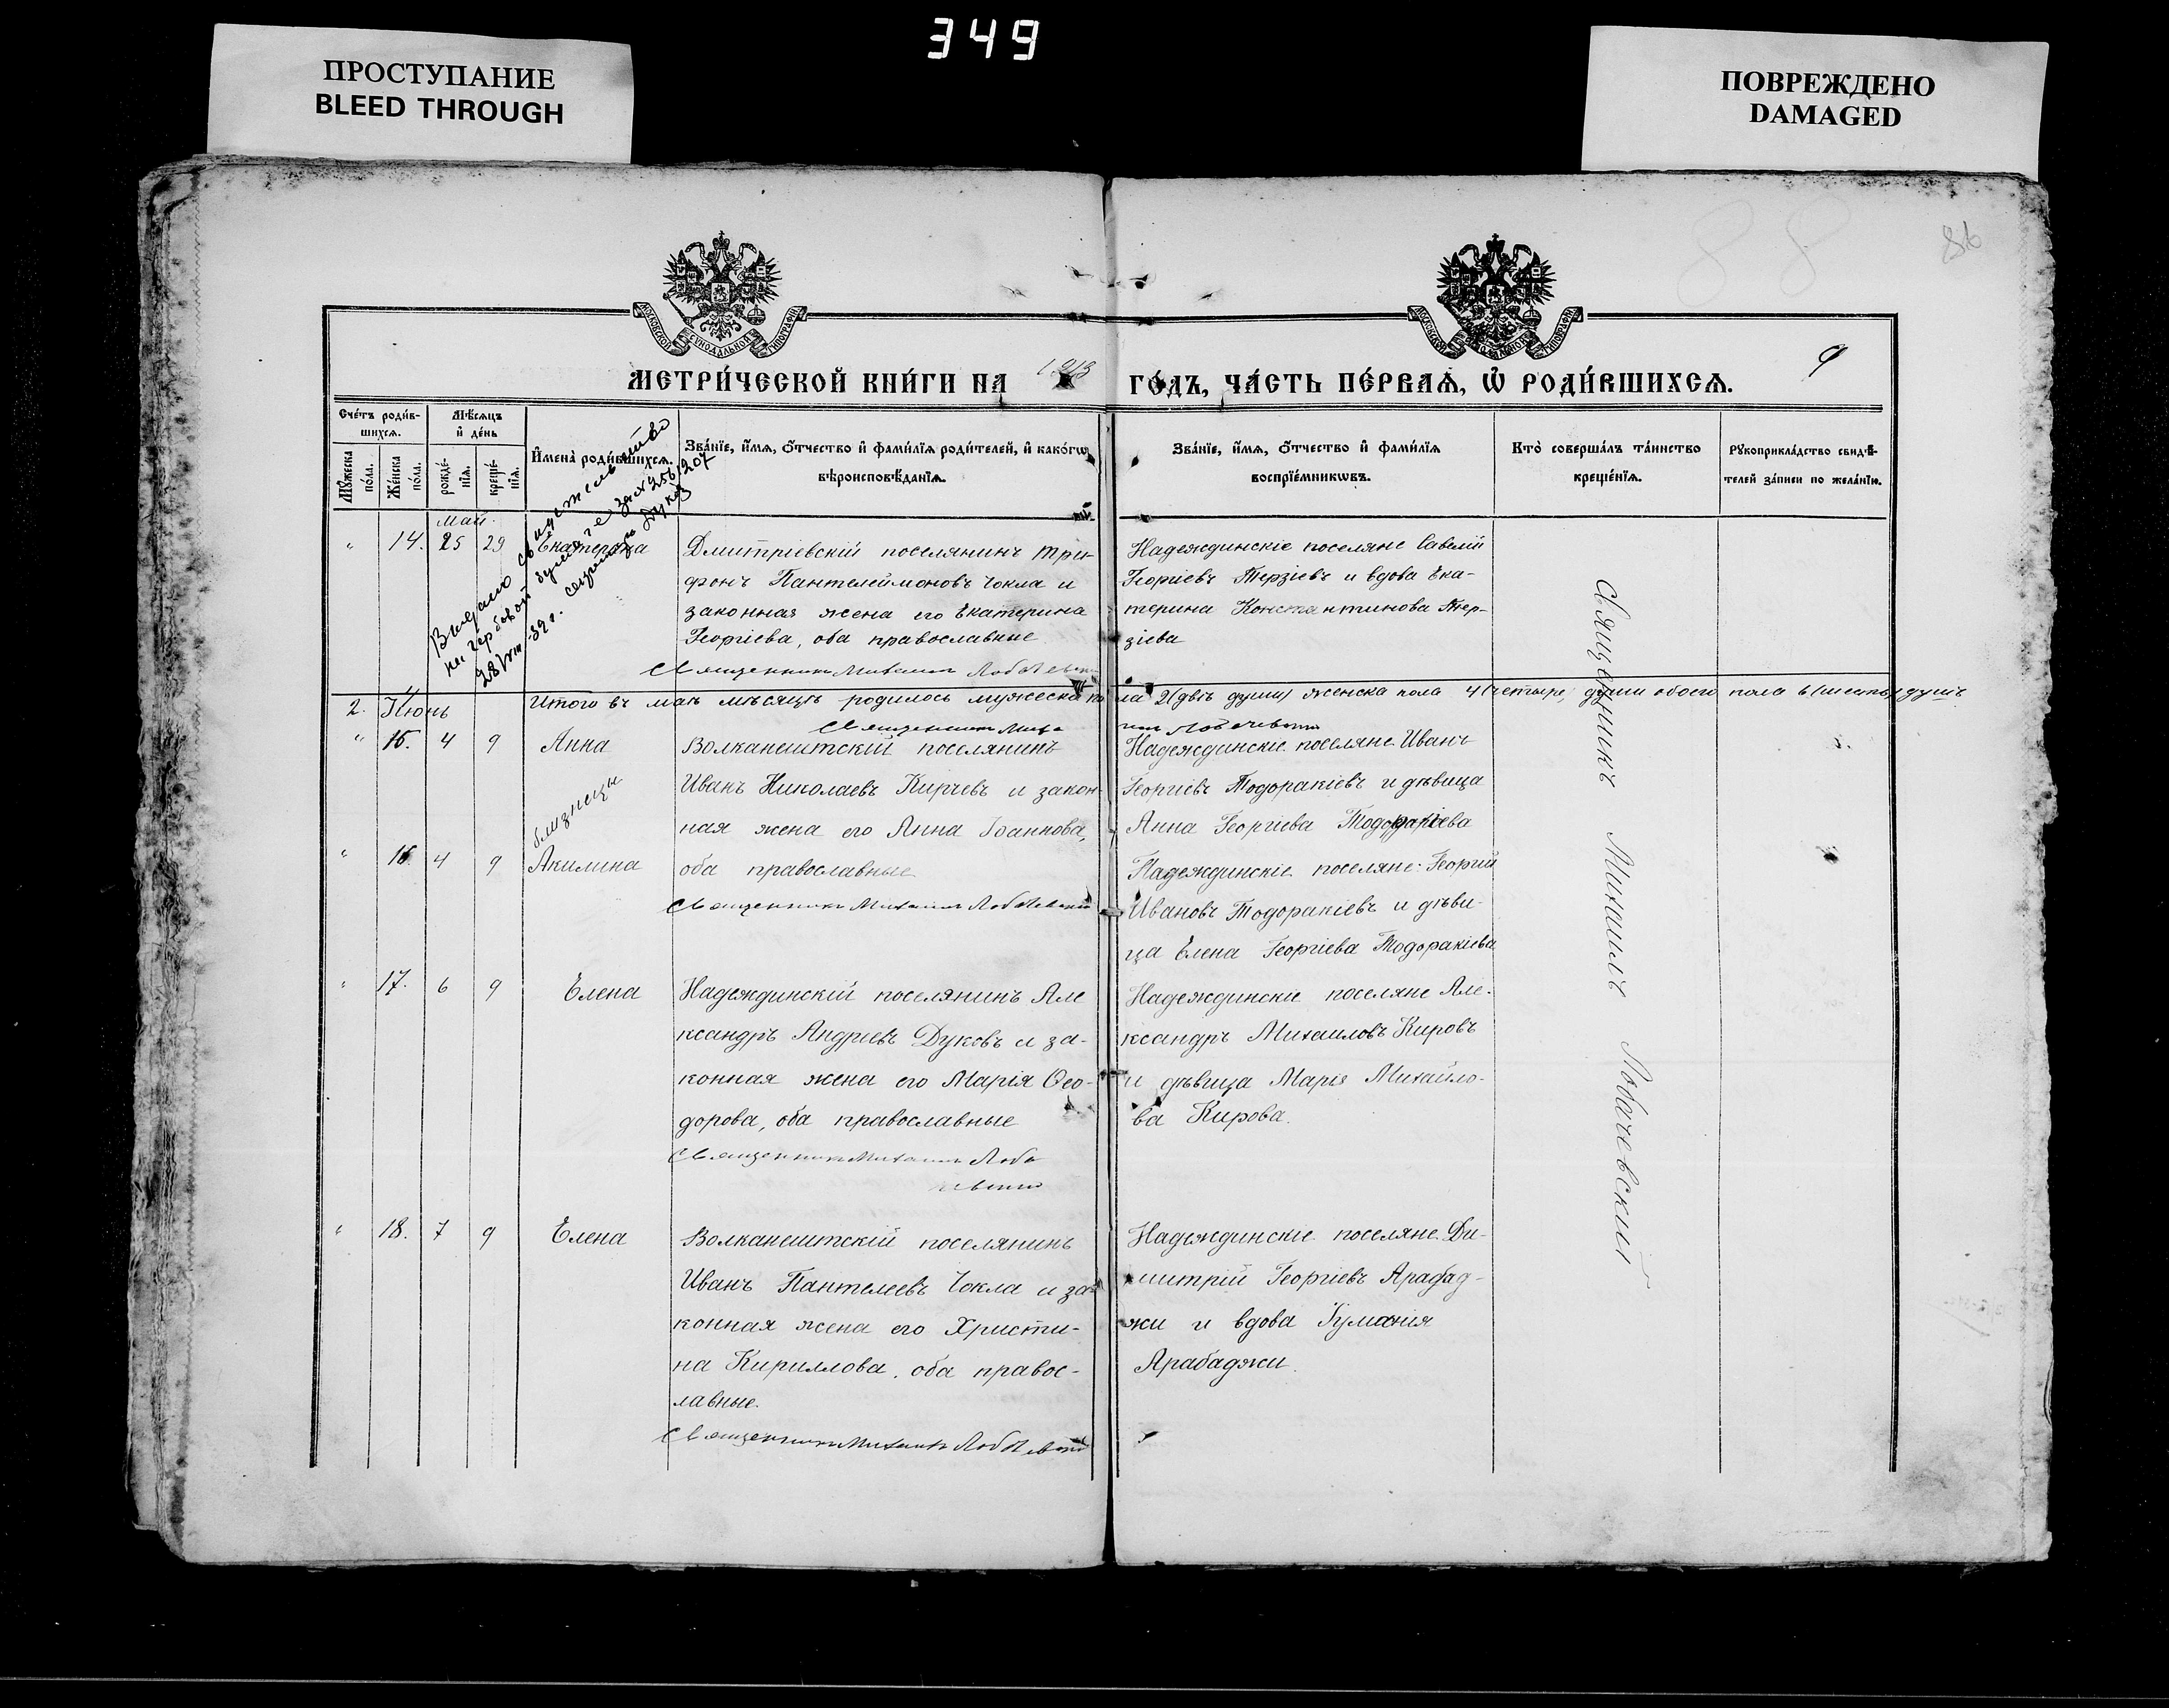 349
ПРОСТУПАНИЕ
BLEED THROUGH
ПОВРЕЖДЕНО
DAMAGED
88
86
МОСКОВСКОЙ СѴНОДАЛЬНОЙ ТИПОГРАФІИ
МОСКОВСКОЙ СѴНОДАЛЬНОЙ ТИПОГРАФІИ
МЕТРИ́ЧЕСКОЙ КНИ́ГИ НА 1913 ГО́ДЪ, ЧА́СТЬ ПЕ́РВАѦ, Ѡ҆ РОДИ́ВШИХСѦ.
9
Сче́тъ роди́в-
шихсѧ.
Мꙋ́жеска по́ла.
Же́нска по́ла.
Мѣ́сѧцъ
и҆ де́нь
рожде́-
нїѧ.
креще́-
нїѧ.
И҆мена̀ роди́вшихсѧ.
Зва́нїе, и҆́мѧ, ѻ҆́тчество и҆ фами́лїѧ роди́телей, и҆ како́гѡ
вѣроисповѣ́данїѧ.
Зва́нїе, и҆́мѧ, ѻ҆́тчество и҆ фами́лїѧ
воспрїе́мникѡвъ.
Кто̀ соверша́лъ та́инство
креще́нїѧ.
Рꙋкоприкла́дство свидѣ́-
телей за́писи по жела́нїю.
Выдано свидетельство
на гербовой бумаге за № 256/207
28/VIII-39г.
май.
" 14. 25 29 Екатерина
Дмитріевскій поселянинъ Три-
фонъ Пантелеймоновъ Чокла и
законная жена его Екатерина
Георгіева, оба православные
Священникъ Михаилъ Лобачевскій
Надеждинскіе поселяне Савелій
Георгіевъ Терзіевъ и вдова Ека-
терина Константинова Тер-
зіева
Итого въ маѣ мѣсяцѣ родилось мужеска пола 2 (двѣ души) женска пола 4 (четыре) души обоего пола 6 (шесть) душъ
Священникъ Михаилъ Лобачевскій
2. Іюнь
" 15. 4 9 Анна
Волканештскій поселянинъ
Иванъ Николаевъ Кирчевъ и закон-
ная жена его Анна Іоаннова,
Надеждинскіе поселяне Иванъ
Георгіевъ Тодоракіевъ и дѣвица
Анна Георгіева Тодоракіева
близнецы
" 16. 4 9 Акилина
оба православные
Священникъ Михаилъ Лобачевскій
Надеждинскіе поселяне: Георгій
Ивановъ Тодоракіевъ и дѣви-
ца Елена Георгіева Тодоракіева
" 17. 6 9 Елена
Надеждинскій поселянинъ Але
ксандръ Андреевъ Дуковъ и за-
конная жена его Марія Ѳео-
дорова, оба православные
Священникъ Михаилъ Лоба
чевскій
Надеждинскіе поселяне Але-
ксандръ Михаиловъ Кировъ
и дѣвица Марія Михайло-
ва Кирова.
" 18. 7 9 Елена
Волканештскій поселянинъ
Иванъ Пантелеевъ Чокла и за-
конная жена его Христи-
на Кириллова, оба правос-
лавные.
Священникъ Михаилъ Лобачевскій
Надеждинскіе поселяне Ди-
митрій Георгіевъ Арабад-
жи и вдова
Арабаджи.
Священникъ Михаилъ Лобачевский